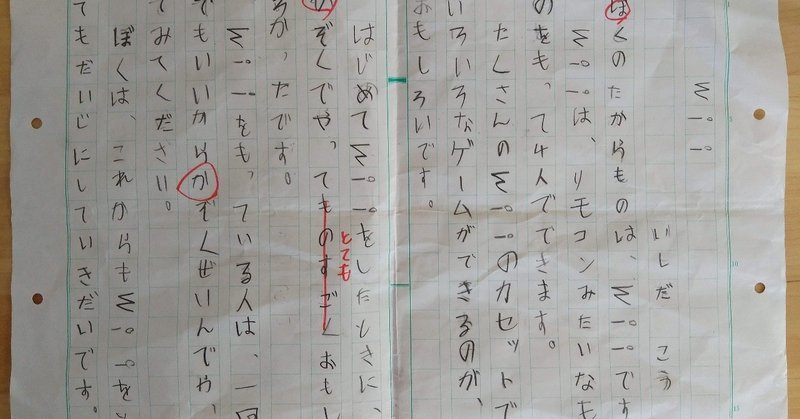 Wii
いしだ こう
ぼくのたからものは、Wiiです
Wiiは、リモコンみたいなも
のをもって4人でできます。
たくさんのWiiのカセットで
いろいろなゲームができるのが、
おもしろいです。
はじめてWiiをしたときに、
ぞくでやってものすごくおもし
とても
ろかったです。
Wiiをもっている人は、一回
でもいいからかぞくぜいんでやっ
てみてください。
ぼくは、これからもWiiをと
てもだいじにしていきたいです。